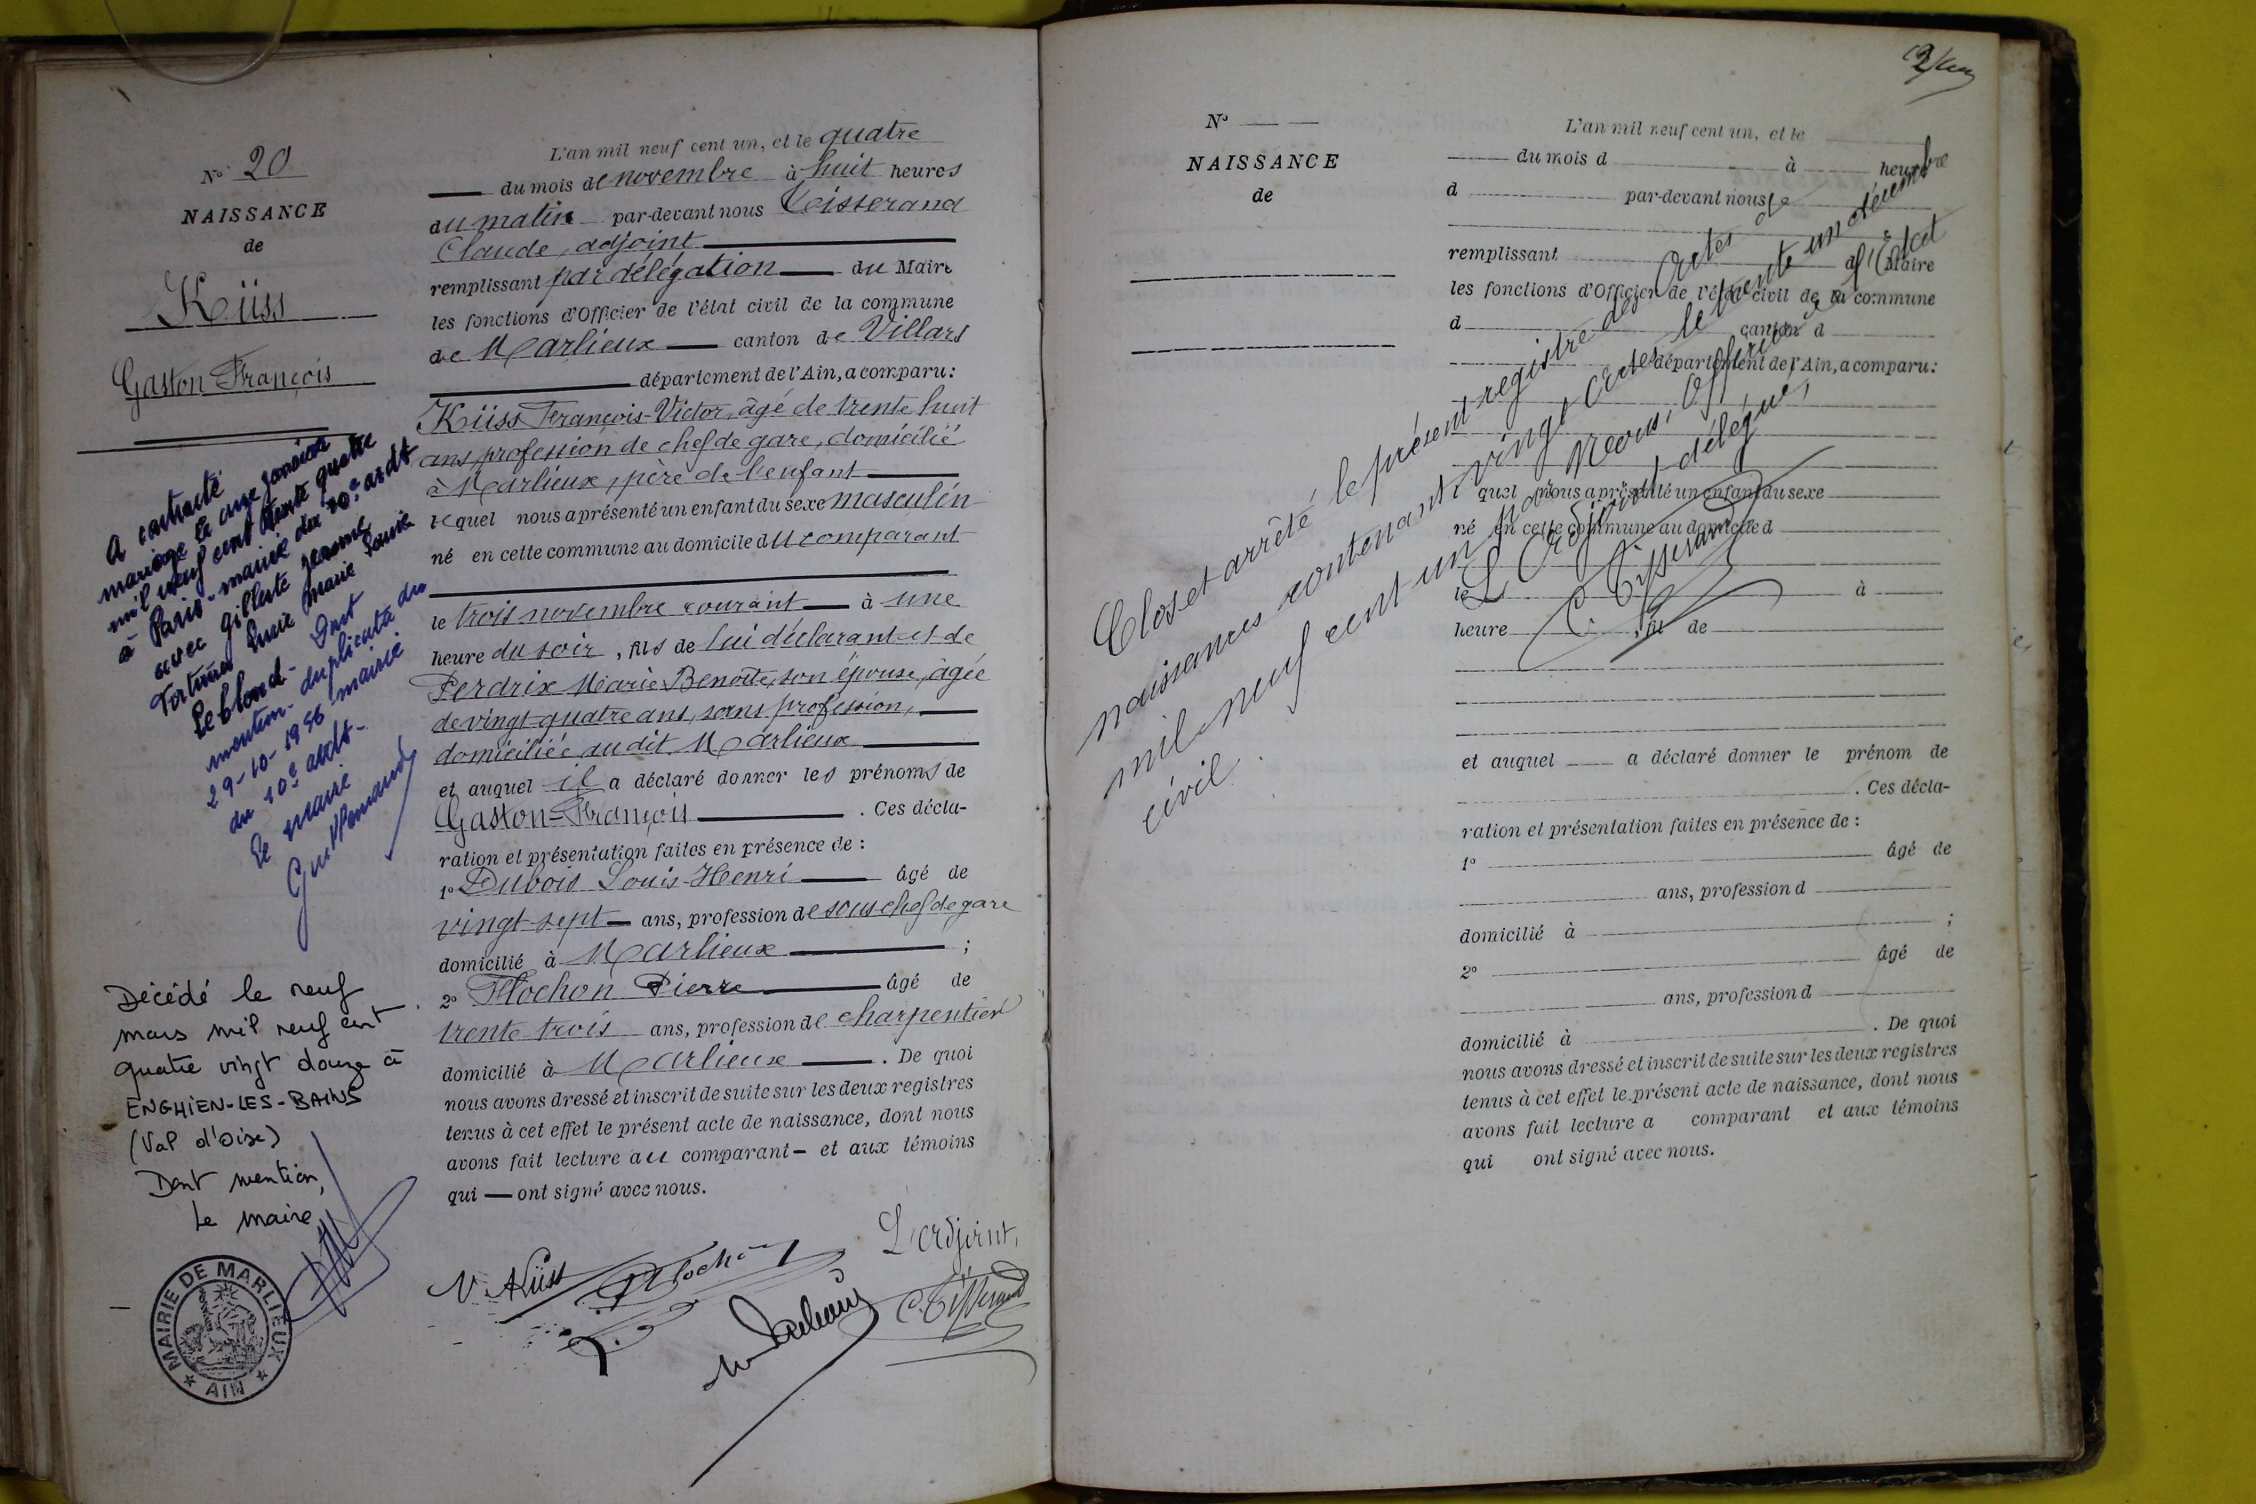 No. 20
NAISSANCE
de
Küss
Gaston François
A contracté
mariage le onze janvier
mil neuf cent trente quatre
à Paris - mairie du 10e ardt
avec Gillette Jeanne
Fortunée Lucie Marie Louise
Leblond. Dont
mention - duplicata du
29-10-1946 mairie
du 10e ardt -
Le maire
Décédé le neuf
mars mil neuf cent
quatre vingt douze à
ENGHIEN-LES-BAINS
(Val d'oise)
Dont mention,
Le maire
MAIRIE DE MARLIEUX
★ AIN ★
L'an mil neuf cent un, et le quatre
du mois de novembre à huit heures
du matin par-devant nous Tisserand
Claude, adjoint
remplissant par délégation du Maire
les fonctions d'Officier de l'état civil de la commune
de Marlieux canton de Villars
département de l'Ain, a comparu:
Küss François-Victor, âgé de trente huit
ans, profession de chef de gare, domicilié
à Marlieux, père de l'enfant
lequel nous a présenté un enfant du sexe masculin
né en cette commune au domicile du comparant
le trois novembre courant à une
heure du soir, fils de lui déclarant et de
Perdrix Marie Benoîte, son épouse, âgée
de vingt quatre ans, sans profession,
domiciliée au dit Marlieux
et auquel il a déclaré donner les prénoms de
Gaston-François. Ces décla-
ration et présentation faites en présence de :
1o Dubois Louis-Henri âgé de
vingt-sept ans, profession de sous chef de gare
domicilié à Marlieux ;
2o Flochon Pierre âgé de
trente trois ans, profession de charpentier
domicilié à Marlieux. De quoi
nous avons dressé et inscrit de suite sur les deux registres
tenus à cet effet le présent acte de naissance, dont nous
avons fait lecture au comparant et aux témoins
qui ont signé avec nous.
L'adjoint,
V. Küss
Flochon
C. Tisserand
No
NAISSANCE
de
L'an mil neuf cent un, et le
du mois d à heure
d par-devant nous
remplissant d Maire
les fonctions d'Officier de l'état civil de la commune
d canton d
département de l'Ain, a comparu:
l quel nous a présenté un enfant du sexe
né en cette commune au domicile d
le à
heure , fil de
et auquel a déclaré donner le prénom de
. Ces décla-
ration et présentation faites en présence de :
1o âgé de
ans, profession d
domicilié à ;
2o âgé de
ans, profession d
domicilié à . De quoi
nous avons dressé et inscrit de suite sur les deux registres
tenus à cet effet le présent acte de naissance, dont nous
avons fait lecture a comparant et aux témoins
qui ont signé avec nous.
Clos et arrêté le présent registre des Actes de
naissances contenant vingt Actes le trente un décembre
mil neuf cent un par Nous, Officier de l'Etat
civil.
L'Adjoint délégué,
C. Tisserand